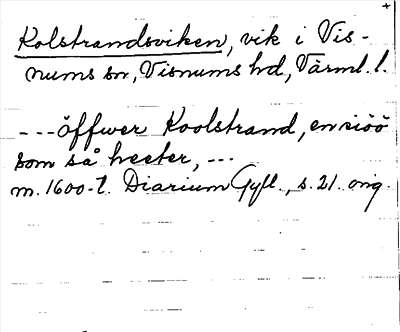 Kolstrandsviken, vik i Vis-
nums sn, Visnums hd, Värml. l.
---öffwer Koolstrand, en siöö
som så heeter, ---
m. 1600-t. Diarium Gyll., s. 21. orig.